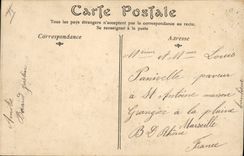 Carte Postale
Tous les pays étrangers n'acceptent pas la correspondance au recto.
Se renseigner à la poste
Correspondance
Adresse
M et Mme Louis
Panivelle paveur
à St Antoine maison
Granger à la plaine
Marseille
B D Rhône
France